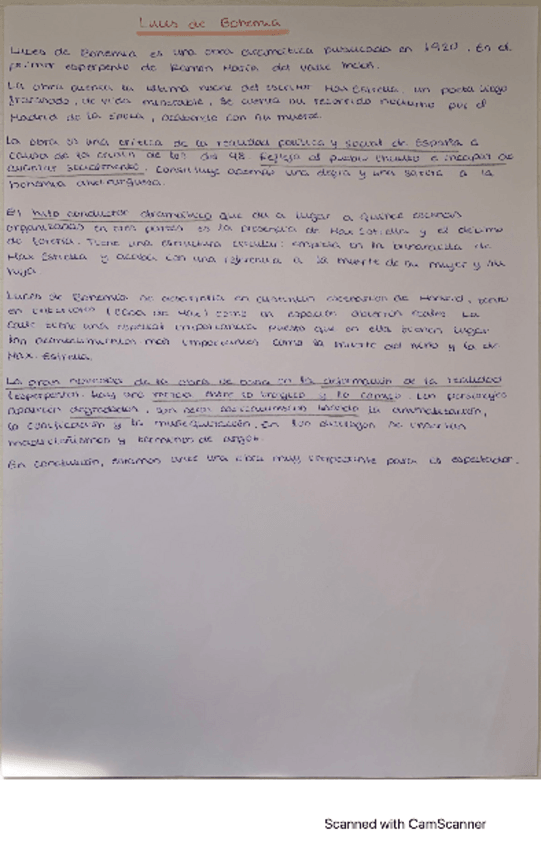 Luces de Bohemia
Luces de Bohemia es una obra dramática publicada en 1920. Es el
primer esperpento de Ramón María del Valle Inclán.
La obra cuenta la última noche del escritor Max Estrella, un poeta ciego
fracasado, de vida miserable, se cuenta su recorrido nocturno por el
Madrid de la época, acabando con su muerte.
La obra es una crítica de la realidad política y social de España a
causa de la crisis de del 98. Refleja al pueblo inculto e incapaz de
socialmente. Constituye además una elegía y una sátira a la
bohemia
El hilo conductor dramático que da a lugar a quince escenas
organizadas en tres partes es la presencia de Max Estrella y el décimo
de lotería. Tiene una estructura circular: empieza en la de
Max Estrella y acaba con una referencia a la muerte de su mujer y su
hija.
Luces de Bohemia se desarrolla en distintos escenarios de Madrid, tanto
en interiores (casa de Max) como en espacios abiertos reales. La
calle tiene una especial importancia puesto que en ella tienen lugar
los acontecimientos más importantes como la muerte del niño y la de
Max Estrella.
La gran novedad de la obra se basa en la deformación de la realidad
(esperpento). Hay una mezcla entre lo trágico y lo cómico. Los personajes
aparecen degradados, son la animalización,
la cosificación y la muñequización. En los diálogos se insertan
madrileñismos y términos de argot.
En conclusión, estamos ante una obra muy para el espectador.
Scanned with CamScanner